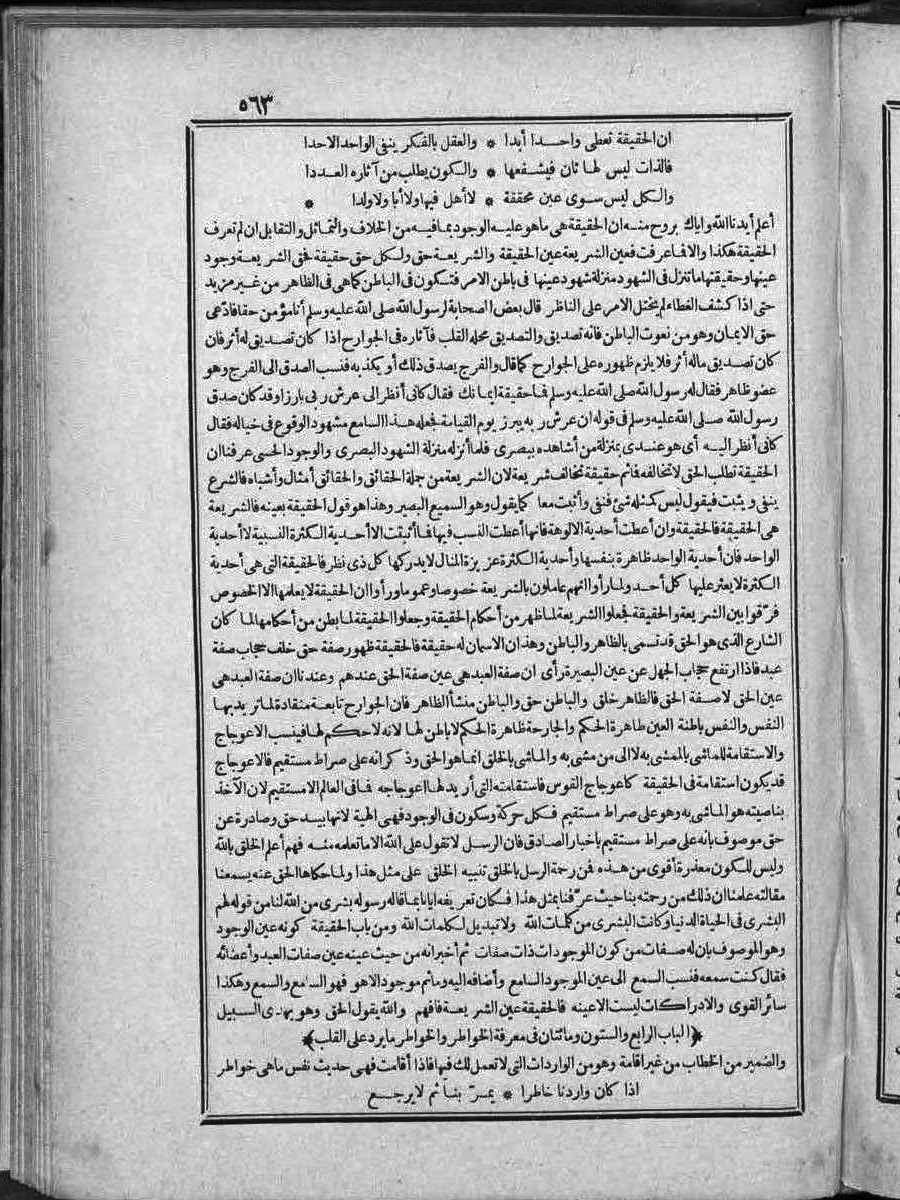 ٥٦٣
ان الحقيقة تعطى واحدا أبدا * والعقل بالفكر ينفى الواحد الاحدا
فالذات ليس لها ثان فيشفعها * والكون يطلب من آثاره العددا
والكل ليس سوى عين محققة * لا أهل فيها ولا أبا ولا ولدا *
أعلم أيدنا الله واياك بروح منه ان الحقيقة هى ما هو عليه الوجود بما فيه من الخلاف والتماثل والتقابل ان لم تعرف
الحقيقة هكذا والا فما عرفت فعين الشريعة عين الحقيقة والشريعة حق ولكل حق حقيقة فحق الشريعة وجود
عينها وحقيقتها ما تنزل فى الشهود منزلة شهود عينها فى باطن الامر فتكون فى الباطن كما هى فى الظاهر من غير مزيد
حتى اذا كشف الغطاء لم يختل الامر على الناظر قال بعض الصحابة لرسول الله صلى الله عليه وسلم أنا مؤمن حقا فادّعى
حق الايمان وهو من نعوت الباطن فانه تصديق والتصديق محله القلب فآثاره فى الجوارح اذا كان تصديق له أثر فان
كان تصديق ماله أثر فلا يلزم ظهوره على الجوارح كما قال والفرج يصدق ذلك أو يكذبه فنسب الصدق الى الفرج وهو
عضو ظاهر فقال له رسول الله صلى الله عليه وسلم فما حقيقة ايمانك فقال كأنى أنظر الى عرش ربى بارزا وقد كان صدق
رسول الله صلى الله عليه وسلم فى قوله ان عرش ربه يبرز يوم القيامة فجعله هذا السامع مشهود الوقوع فى خياله فقال
كانى أنظر اليه أى هو عندى بمنزلة من أشاهده ببصرى فلما أنزله منزلة الشهود البصرى والوجود الحسى عرفنا ان
الحقيقة تطلب الحق لا تخالفه فاثم حقيقة تخالف شريعة لان الشريعة من جملة الحقائق والحقائق أمثال وأشباه فالشرع
ينفى ويثبت فيقول ليس كمثله شئ فنفى وأثبت معا كما يقول وهو السميع البصير وهذا هو قول الحقيقة بعينه فالشريعة
هى الحقيقة فالحقيقة وان أعطت أحدية الالوهة فانها أعطت النسب فيها فما أثبتت الا أحدية الكثرة النسبية لا أحدية
الواحد فان أحدية الواحد ظاهرة بنفسها وأحدية الكثرة عزيزة المنال لا يدركها كل ذى نظر فالحقيقة التى هى أحدية
الكثرة لا يعثر عليها كل أحد ولما رأوا انهم عاملون بالشريعة خصوصا وعموما ورأوا ان الحقيقة لا يعلمها الا الخصوص
فرّقوا بين الشريعة والحقيقة فجعلوا الشريعة لما ظهر من أحكام الحقيقة وجعلوا الحقيقة لما بطن من أحكامها لما كان
الشارع الذى هو الحق قد تسمى بالظاهر والباطن وهذان الاسمان له حقيقة فالحقيقة ظهور صفة حق خلف حجاب صفة
عبد فاذا ارتفع حجاب الجهل عن عين البصيرة رأى ان صفة العبد هى عين صفة الحق عندهم وعندنا ان صفة العبد هى
عين الحق لا صفة الحق فالظاهر خلق والباطن حق والباطن منشأ الظاهر فان الجوارح تابعة منقادة لما تريد بها
النفس والنفس باطنة العين ظاهرة الحكم والجارحة ظاهرة الحكم لا باطن لها لانه لا حكم لها فينسب الاعوجاج
والاستقامة للماشى بالممشى به لا الى من مشى به والماشى بالخلق انما هو الحق وذكر انه على صراط مستقيم فالاعوجاج
قد يكون استقامة فى الحقيقة كاعوجاج القوس فاستقامته التى أريد لها اعوجاجه فما فى العالم الا مستقيم لان الآخذ
بناصيته هو الماشى به وهو على صراط مستقيم فكل حركة وسكون فى الوجود فهى الهية لانها بيد حق وصادرة عن
حق موصوف بانه على صراط مستقيم باخبار الصادق فان الرسل لا تقول على الله الا ما تعلمه منه فهم أعلم الخلق بالله
وليس للكون معذرة أقوى من هذه فمن رحمة الرسل بالخلق تنبيه الخلق على مثل هذا ولما حكاها الحق عنه يسمعنا
مقالته علمنا ان ذلك من رحمته بنا حيث عرّفنا بمثل هذا فكان تعريفه ايانا بما قاله رسوله بشرى من الله لنا من قوله لهم
البشرى فى الحياة الدنيا وكانت البشرى من كلمات الله ولا تبديل لكلمات الله ومن باب الحقيقة كونه عين الوجود
وهو الموصوف بان له صفات من كون الموجودات ذات صفات ثم أخبر انه من حيث عينه عين صفات العبد وأعضائه
فقال كنت سمعه فنسب السمع الى عين الموجود السامع وأضافه اليه وما ثم موجود الا هو فهو السامع والسمع وهكذا
سائر القوى والادراكات ليست الا عينه فالحقيقة عين الشريعة فافهم والله يقول الحق وهو يهدى السبيل
﴿الباب الرابع والستون ومائتان فى معرفة الخواطر والخواطر ما يرد على القلب﴾
والضمير من الخطاب من غير اقامة وهو من الواردات التى لا تعمل لك فيها فاذا أقامت فهى حديث نفس ما هى خواطر
اذا كان واردنا خاطرا * يمرّ بنا ثم لا يرجع